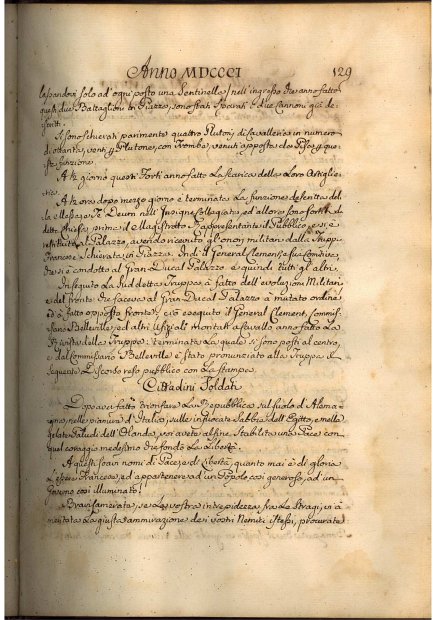 Anno MDCCCI 129
lasçandosi solo ad' ogni posto una Sentinella; nell' ingresso che anno fatto
questi due Battaglioni in Piazza, sono stati sparati i due Cannoni già de-
scritti.
Si sono schierati parimente quattro Plutonj di Cavalleria in numero
di ottanta, venti p Plutone, con Trombe, venuti apposta da Pisa p que-
sta funzione.
A h giorno questi Forti anno fatto la Scarica della Loro Artiglie-
ria.
A h ore dopo mezzo giorno è terminata La funzione descritta del-
la Messa, e Te Deum nell' Insigne Collegiata, ed allora sono sortiti di
detta Chiesa prima il Magistrato Rappresentante il Pubblico, e si è
restituito al Palazzo, avendo ricevuto gli onori militari dalla Truppa
Francese Schierata in Piazza. Indi il General Clement, e sua Comitiva
che si è condotto al Gran Ducal Palazzo e quindi tutti gli altri.
In seguito La sud detta Truppa à fatto dell' evoluzioni Militari
e dal fronte che faceva al Gran Ducal Palazzo à mutato ordine
ed à fatto opposto fronte; ciò eseguito il General Clement, Commis-
sario Belleville, ed altri Ufiziali Montati a Cavallo anno fatto La
Rivista della Truppa: terminata La quale si sono posti al centro,
e dal Commissario Belleville è stato pronunziato alla Truppa il
seguente Discorso reso pubblico con La stampa.
Cittadini Soldati
Dopo aver fatto trionfare La Repubblica sul suolo d'Alema-
gna, nelle pianure d'Italia, sulle infuocate Sabbie dell' Egitto, e nelle
gelate Paludi dell' Olanda, voi avete alfine Stabilita una Pace con
quel coraggio medesimo che fondò La Libertà.
A questi soavi nomi di Pace, e di Libertà, quanto mai è di gloria
L'essere Francese, ed appartenere ad un Popolo così generoso, ad un
Governo così illuminato!
Bravi Camerata, se La vostra intrepidezza fra Le Stragi, vi à
meritata La giusta ammirazione de i vostri Nemici istessi, procurate